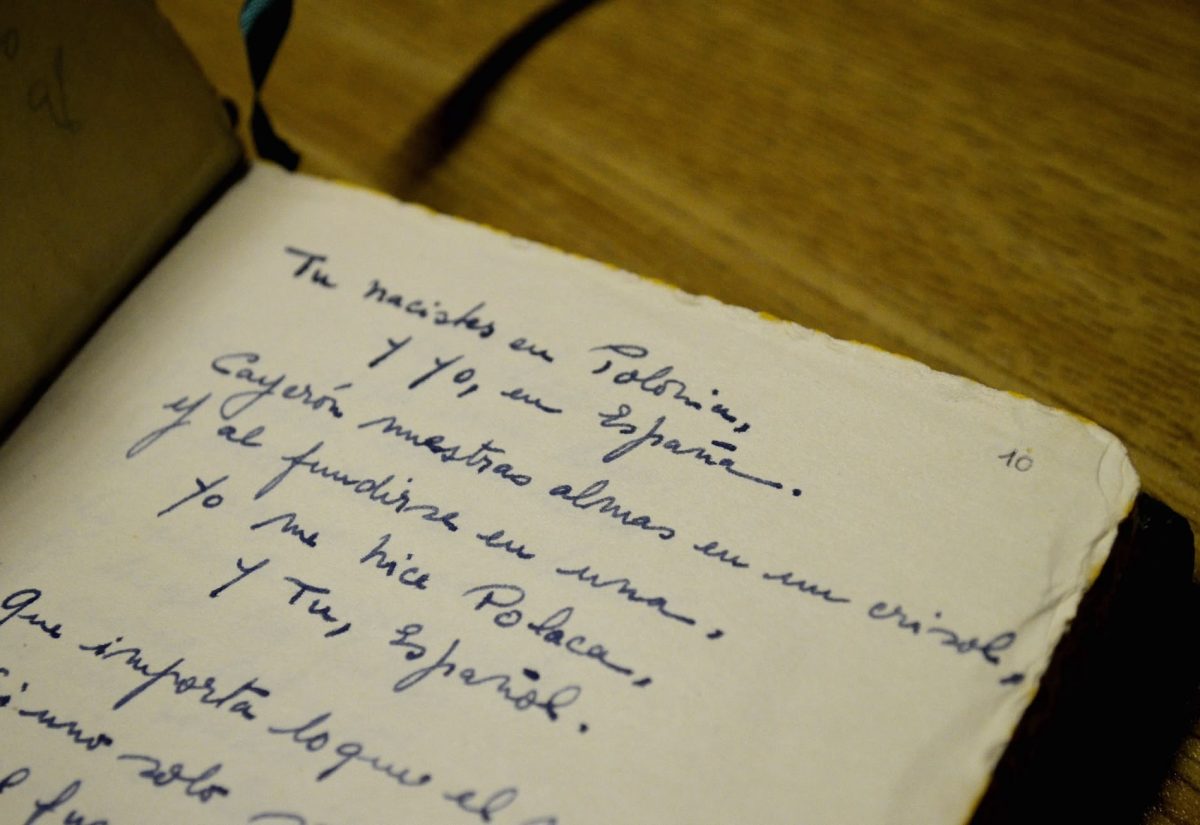 10
Tu nacistes en Polonia,
y yo, en España.
Cayerón nuestras almas en un crisol,
y al fundirse en una,
yo me hice Polaca,
y Tu, Español.
Que importa lo que el
Si uno solo